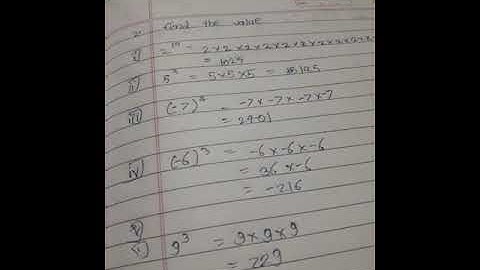 2. Find the value
i) 2¹⁰ = 2×2×2×2×2×2×2×2×2×2
= 1024
ii) 5³ = 5×5×5 = 125
iii) (-7)⁴ = -7×-7×-7×-7
= 2401
iv) (-6)³ = -6×-6×-6
= 36×-6
= -216
i) 9³ = 9×9×9
= 729